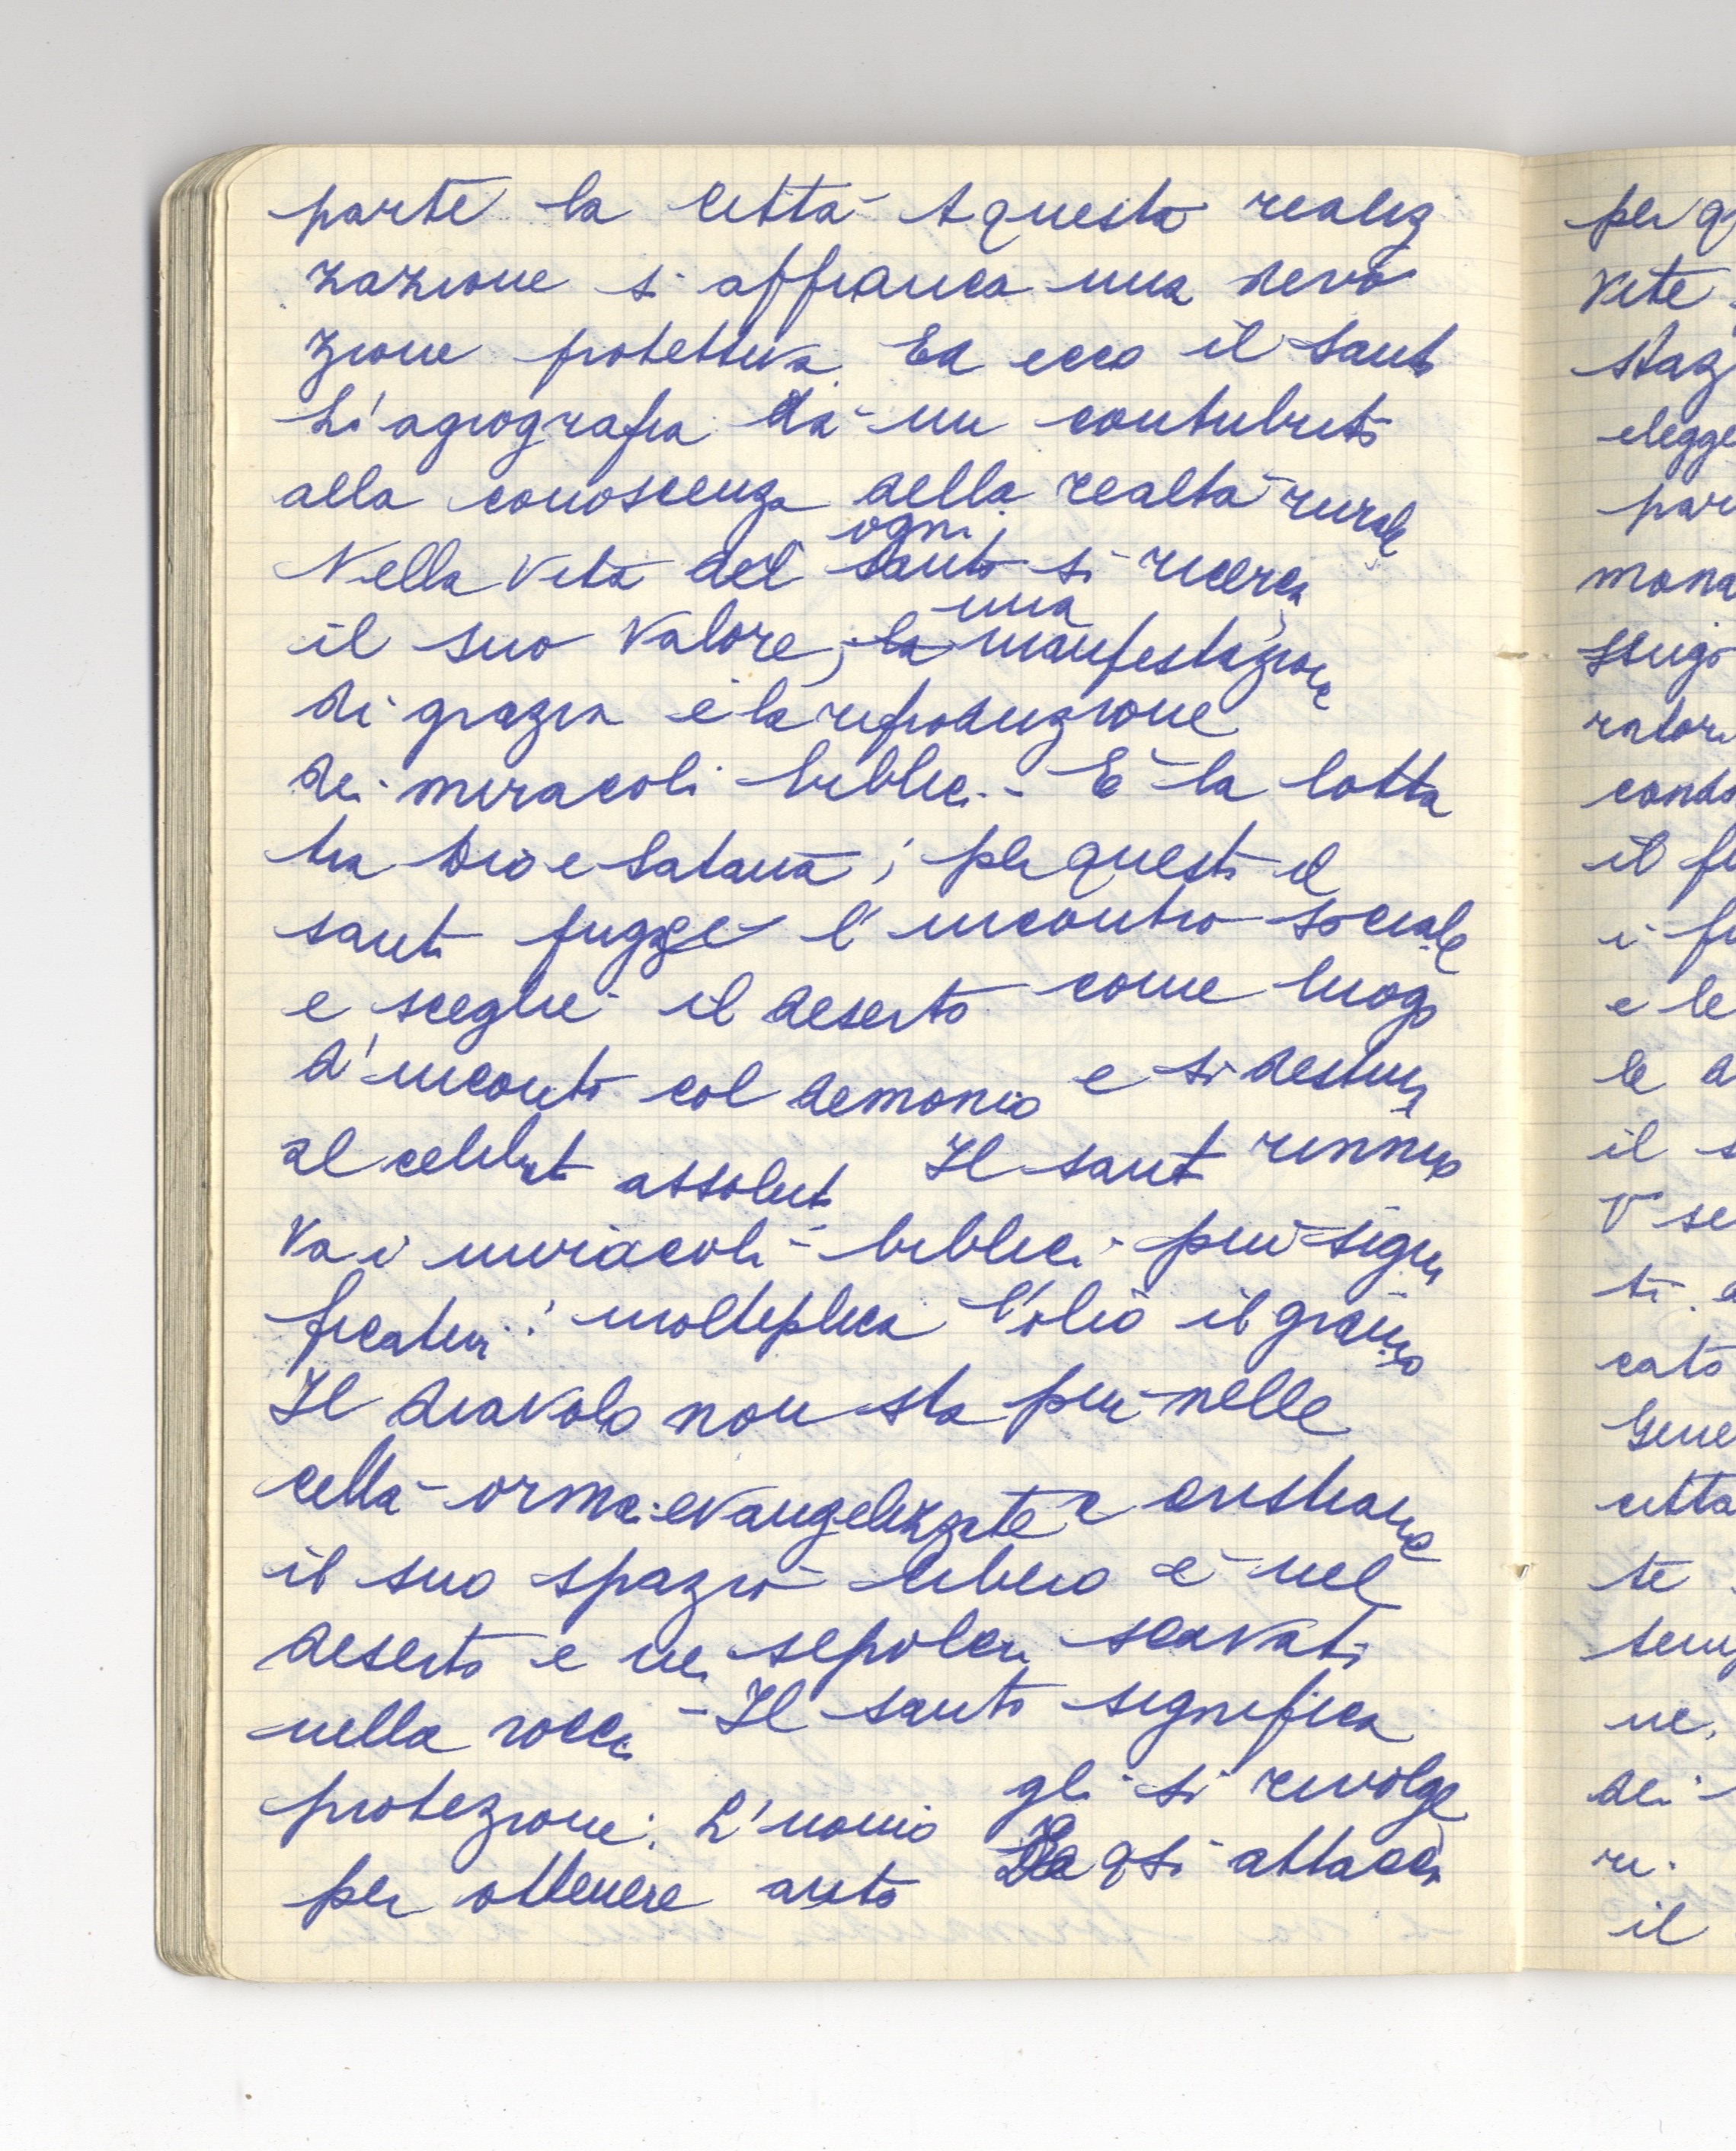 parte la città A questa realiz
zazione si affianca una devo
zione protettiva. Ed ecco il Santo
L'agiografia dà un contributo
alla conoscenza della realtà rurale
ogni
Nella vita del santo si ricerca
una
il suo valore, la manifestazione
di grazia e la riproduzione
dei miracoli biblici - È la lotta
tra Dio e Satana; per questo il
santo fugge l'incontro sociale
e sceglie il deserto come luogo
d'incontro col demonio e si destina
al celibato assoluto Il santo rinno
va i miracoli biblici più signi
ficativi: moltiplica l'olio il grano
Il diavolo non sta più nelle
città ormai evangelizzate e cristiane
il suo spazio libero è nel
deserto e nei sepolcri scavati
nella roccia - Il santo significa
protezione: L'uomo gli si rivolge
per ottenere aiuto si attacca
per q
vite
staz
elegge
par
mona
rator
condo
il
i
e le
le
il s
se
ti.
cato
Gene
citta
te
ne.
dei
il